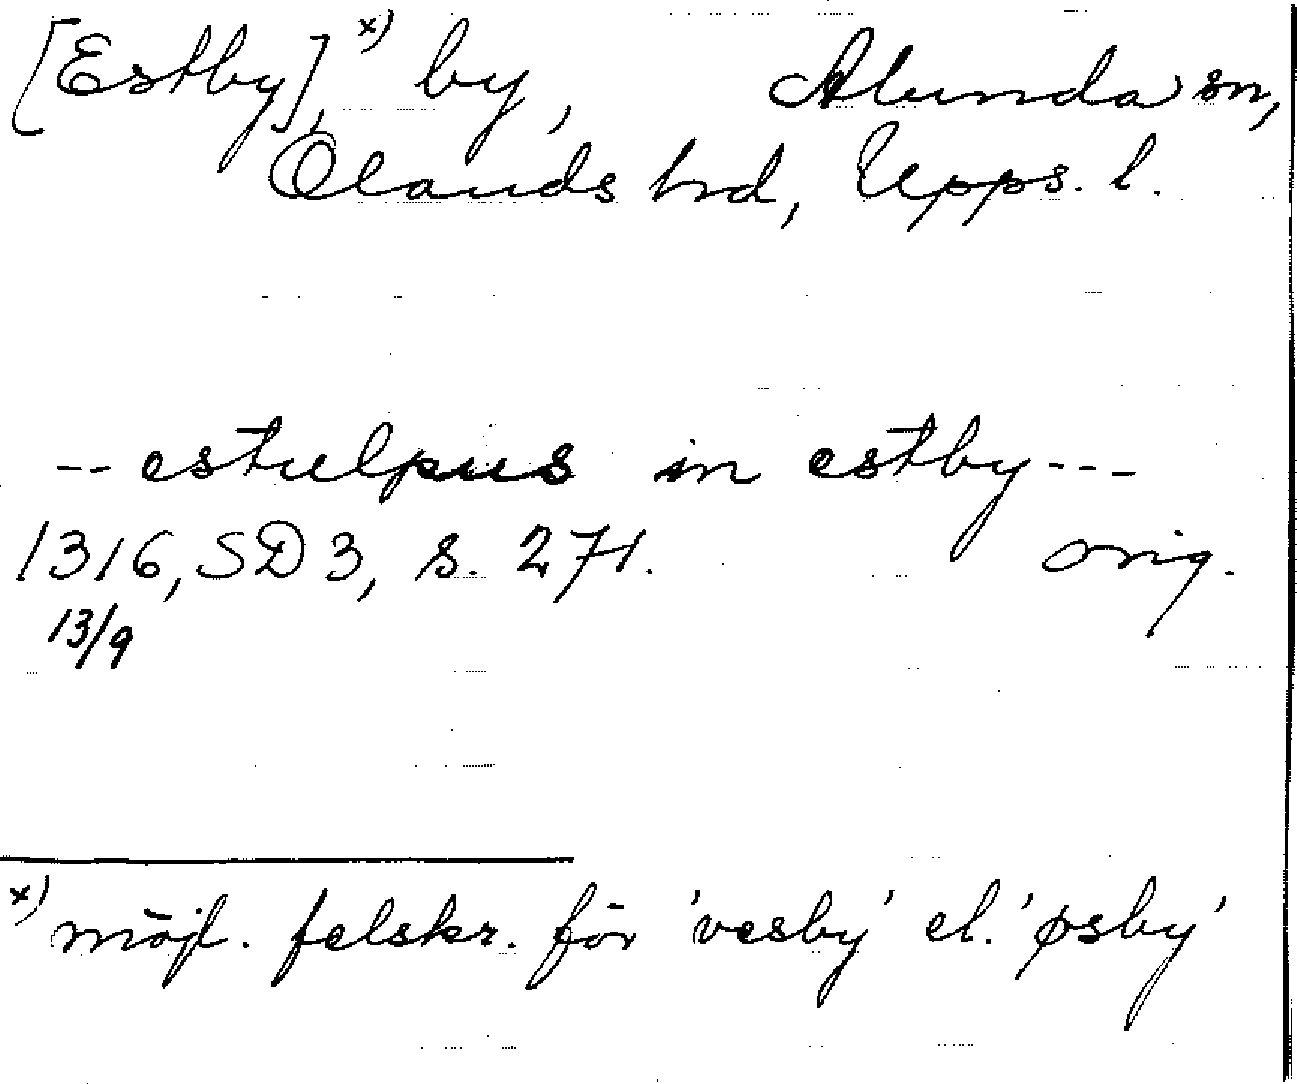 [Estby],x) by, Alunda sn,
Olands hd, Upps. l.
-- estulpus in estby ---
1316, SD 3, s. 271. orig.
13/9
x) möjl. felskr. för 'vesby' el. 'øsby'